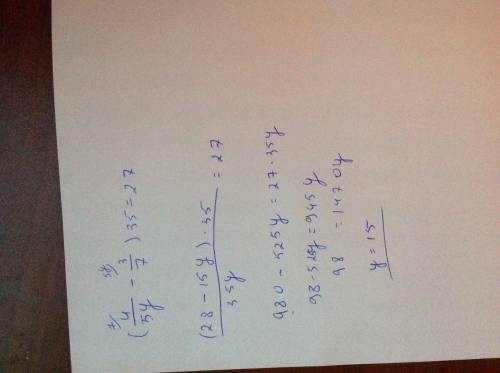 7/ 5y/
(4/5y - 3/7) 35 = 27
(28 - 15y) · 35 / 35y = 27
980 - 525y = 27 · 35y
98 · 525y = 945y
98 = 1470y
y = 15